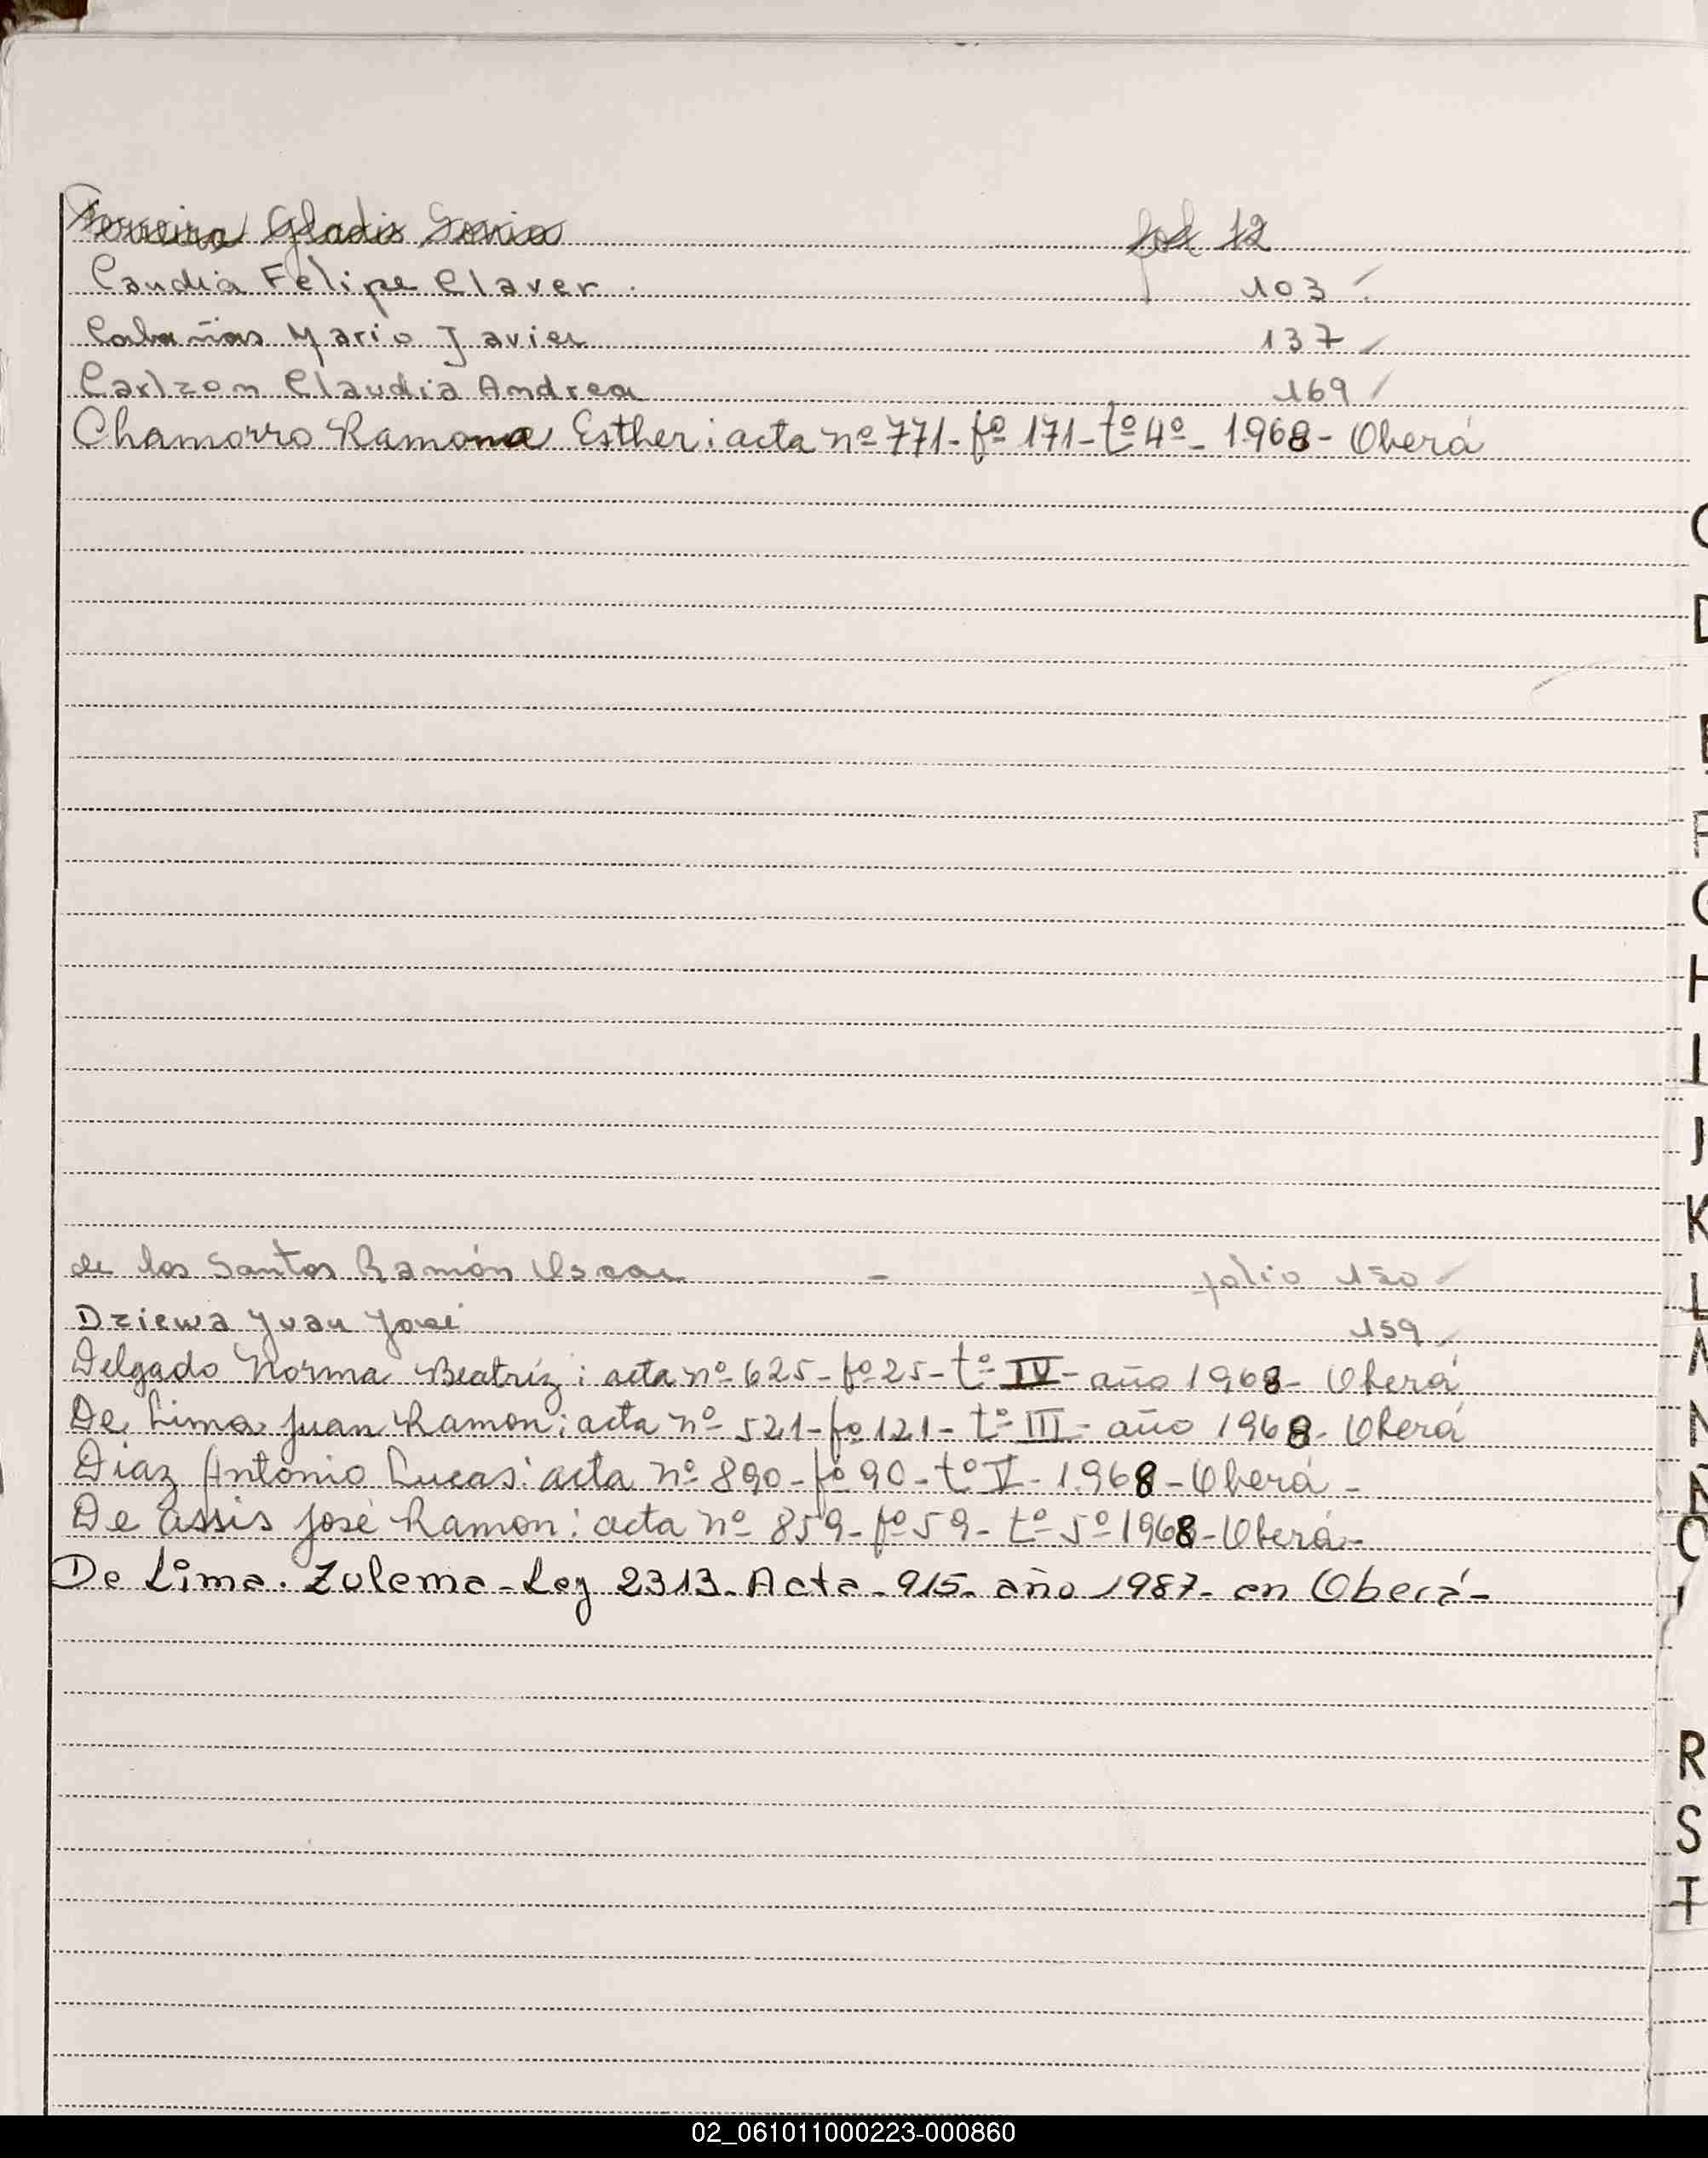 Ferreira Gladis Sonia fol 12
Candia Felipe Claver. 103
Cabañas Mario Javier 137
Carlzon Claudia Andrea 169
Chamorro Ramona Esther: acta nº 771- fº 171- tº 4º- 1968- Oberá
C
D
E
F
G
H
I
J
K
de los Santos Ramón Oscar - folio 150
L
Dziewa Juan José 159
Delgado Norma Beatríz: acta nº 625- fº 25- tº IV- año 1968- Oberá
De Lima Juan Ramon: acta nº 521- fº 121- tº III- año 1968- Oberá
N
Diaz Antonio Lucas: acta nº 890- fº 90- tº V- 1968- Oberá-
Ñ
De assis José Ramon: acta nº 859- fº 59- tº 5º 1968- Oberá-
O
De Lima. Zulema- Ley 2313- Acta- 915- año 1987- en Oberá-
R
S
T
02_061011000223-000860